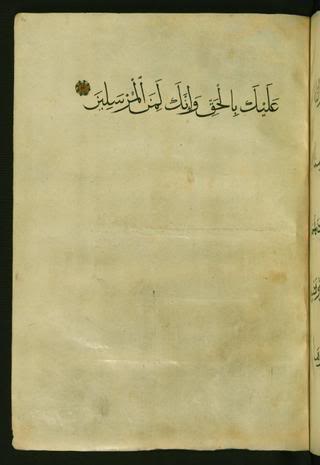 عَلَيْكَ بِالْحَقِّ وَإِنَّكَ لَمِنَ الْمُرْسَلِينَ